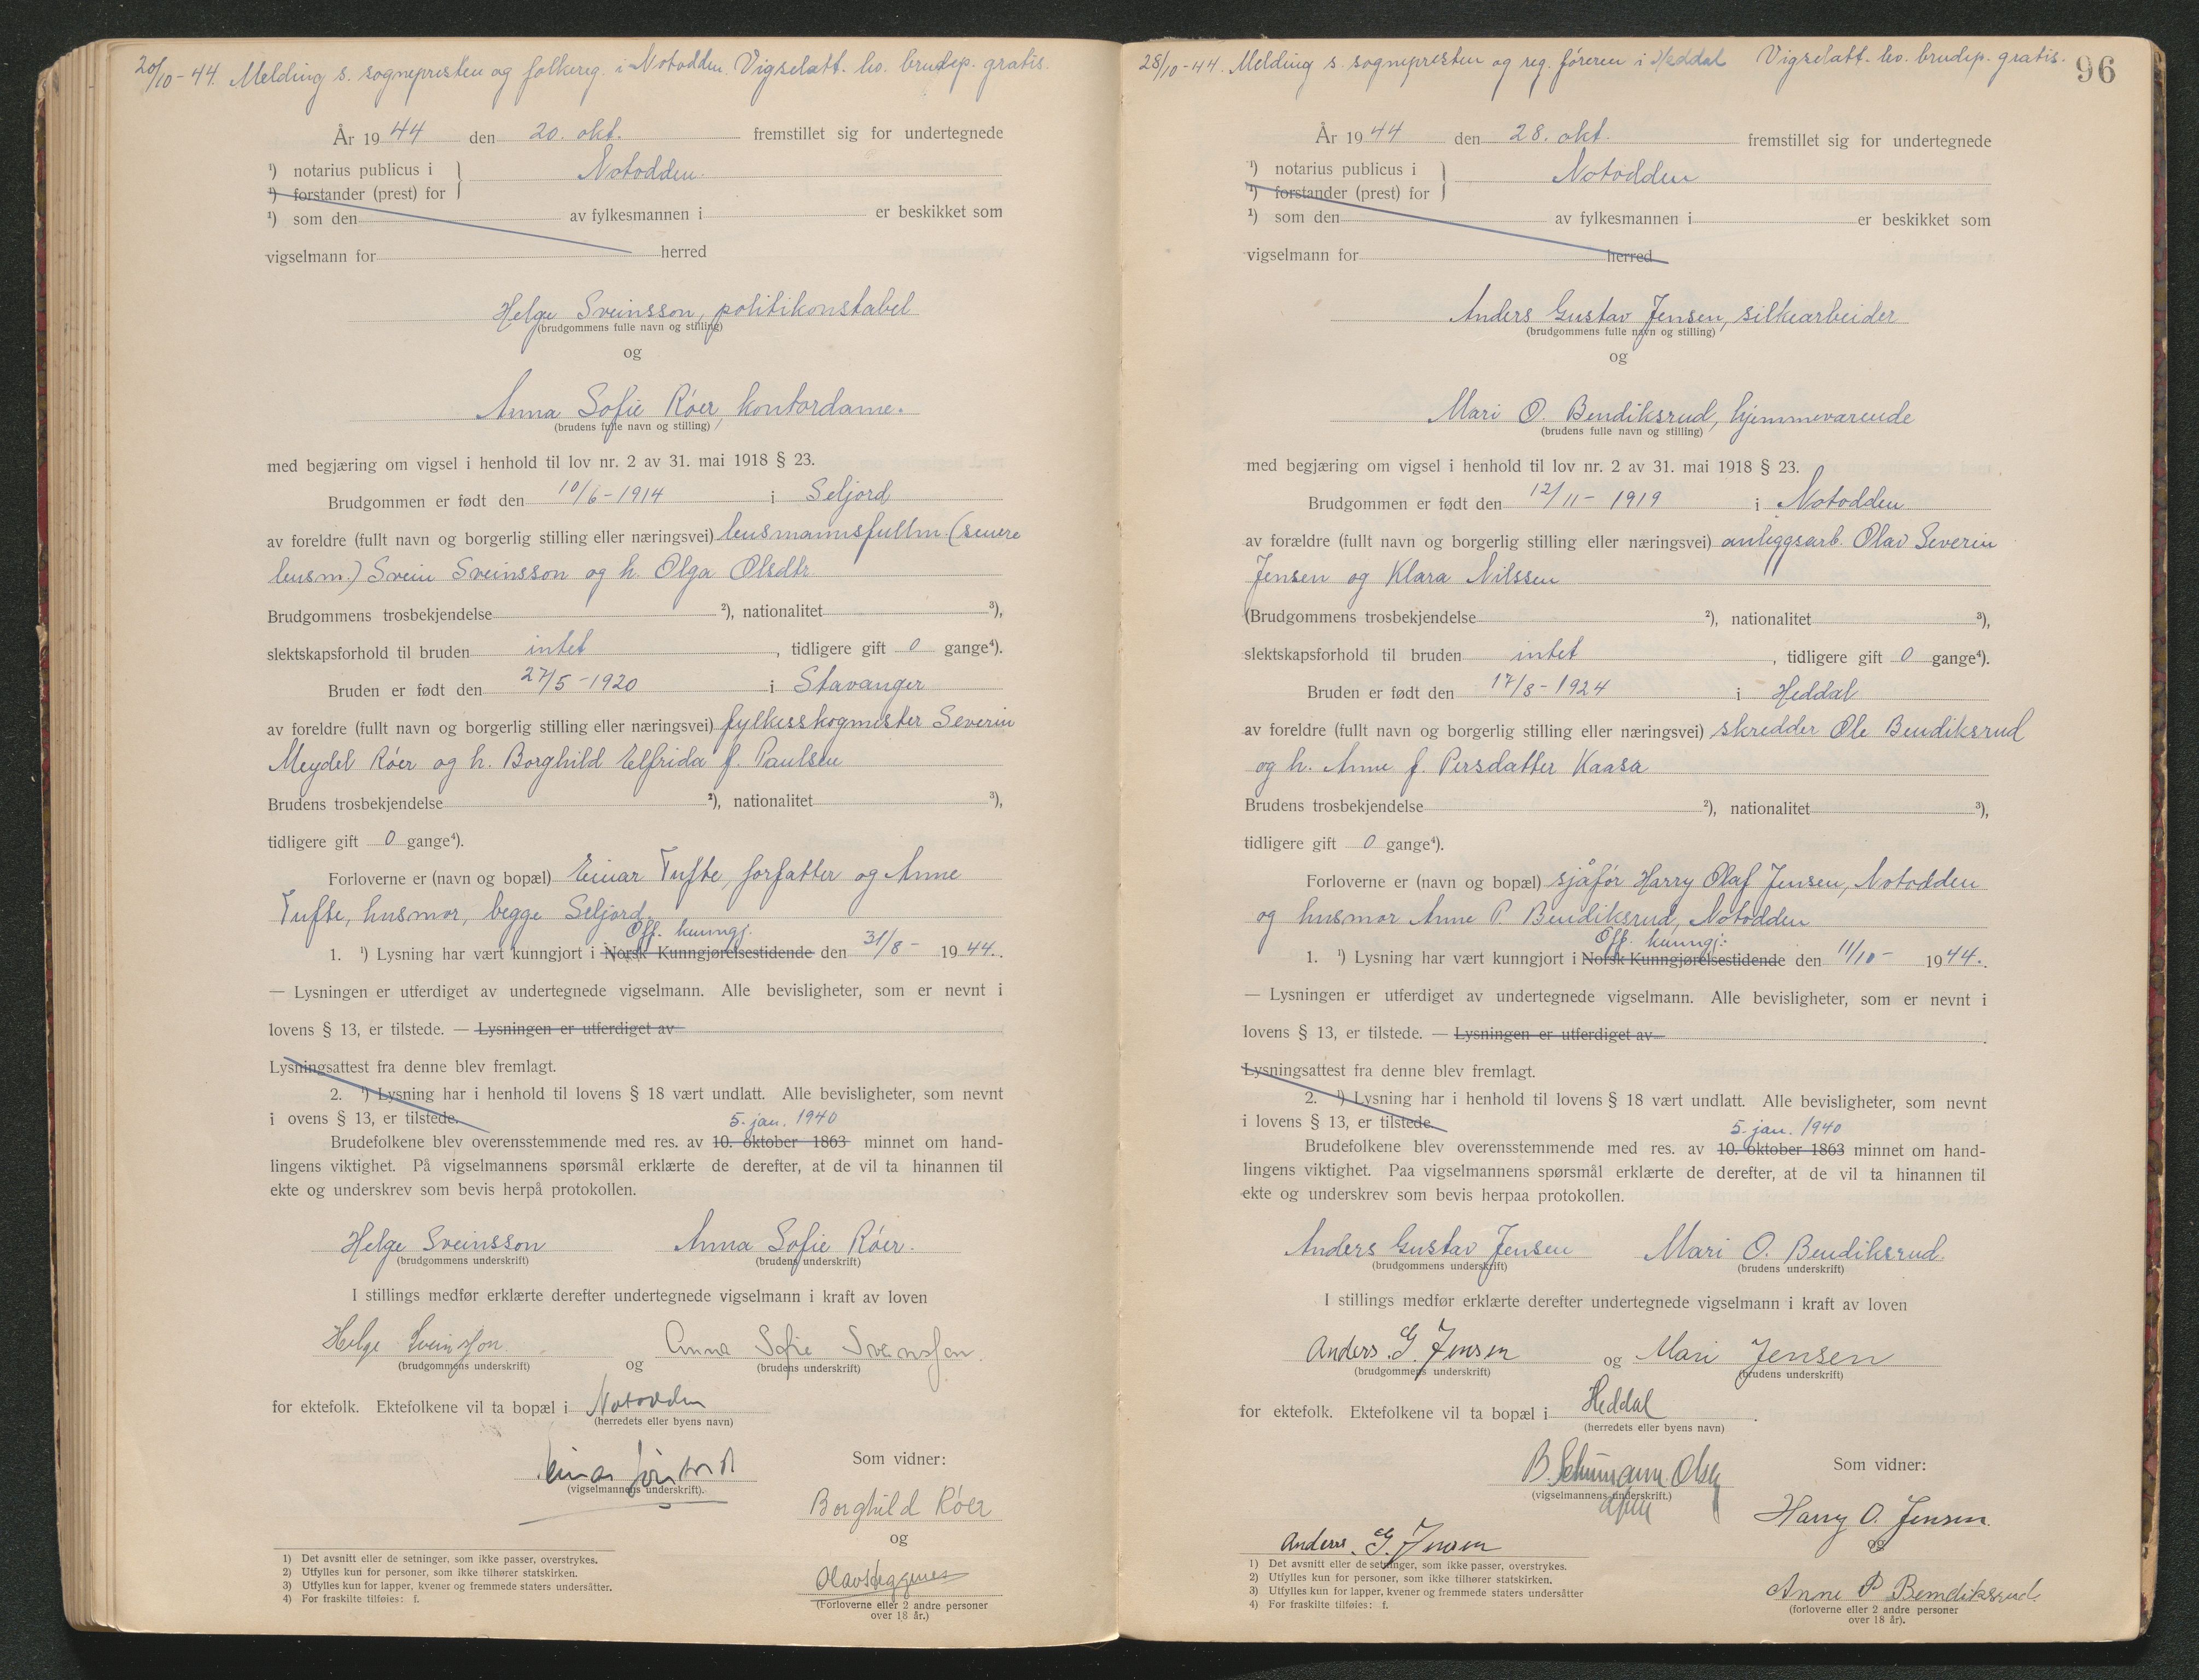 20/10-44. Melding s. sognepresten og folkereg. i Notodden. Vigselatt. lev. brudep. gratis.
År 1944 den 20. okt. fremstillet sig for undertegnede
¹) notarius publicus i } Notodden.
¹) forstander (prest) for
¹) som den av fylkesmannen i er beskikket som
vigselmann for herred
Helge Sveinsson, politikonstabel
(brudgommens fulle navn og stilling)
og
Anna Sofie Róer, kontordame.
(brudens fulle navn og stilling)
med begjæring om vigsel i henhold til lov nr. 2 av 31. mai 1918 § 23.
Brudgommen er født den 10/6-1914 i Seljord
av foreldre (fullt navn og borgerlig stilling eller næringsvei) lensmannsfullm. (senere
lensm.) Svein Sveinsson og h. Olga Olsdtr.
Brudgommens trosbekjendelse ²), nationalitet ³),
slektskapsforhold til bruden intet, tidligere gift 0 gange⁴).
Bruden er født den 27/5-1920 i Stavanger
av foreldre (fullt navn og borgerlig stilling eller næringsvei) fylkesskogmester Severin
Meydel Róer og h. Borghild Elfrida f. Paulsen
Brudens trosbekjendelse ²), nationalitet ³),
tidligere gift 0 gange⁴).
Forloverne er (navn og bopæl) Einar Tufte, forfatter og Anne
Tufte, husmor, begge Seljord.
Off. kunngj.
1. ¹) Lysning har vært kunngjort i Norsk Kunngjørelsestidende den 31/8- 1944.
— Lysningen er utferdiget av undertegnede vigselmann. Alle bevisligheter, som er nevnt i
lovens § 13, er tilstede. — Lysningen er utferdiget av
Lysningsattest fra denne blev fremlagt.
2. ¹) Lysning har i henhold til lovens § 18 vært undlatt. Alle bevisligheter, som nevnt
i ovens § 13, er tilstede.
5. jan. 1940
Brudefolkene blev overensstemmende med res. av 10. oktober 1863 minnet om hand-
lingens viktighet. På vigselmannens spørsmål erklærte de derefter, at de vil ta hinannen til
ekte og underskrev som bevis herpå protokollen.
Helge Sveinsson Anna Sofie Róer.
(brudgommens underskrift) (brudens underskrift)
I stillings medfør erklærte derefter undertegnede vigselmann i kraft av loven
Helge Sveinsson og Anna Sofie Sveinsson
(brudgommens underskrift) (brudens underskrift)
for ektefolk. Ektefolkene vil ta bopæl i Notodden
(herredets eller byens navn)
Som vidner:
(vigselmannens underskrift).
Borghild Róer
og
(Forloverne eller 2 andre personer
over 18 år.)
1) Det avsnitt eller de setninger, som ikke passer, overstrykes.
2) Utfylles kun for personer, som ikke tilhører statskirken.
3) Utfylles kun for lapper, kvener og fremmede staters undersåtter.
4) For fraskilte tilføies: f.
28/10-44. Melding s. sognepresten og reg. føreren i Heddal Vigselatt. lev. brudep. gratis.
96
År 1944 den 28. okt. fremstillet sig for undertegnede
¹) notarius publicus i } Notodden
¹) forstander (prest) for
¹) som den av fylkesmannen i er beskikket som
vigselmann for herred
Anders Gustav Jensen, silkearbeider
(brudgommens fulle navn og stilling)
og
Mari O. Bendiksrud, hjemmeværende
(brudens fulle navn og stilling)
med begjæring om vigsel i henhold til lov nr. 2 av 31. mai 1918 § 23.
Brudgommen er født den 12/11-1919 i Notodden
av forældre (fullt navn og borgerlig stilling eller næringsvei) anleggsarb. Olav Severin
Jensen og Klara Nilssen
(Brudgommens trosbekjendelse ²), nationalitet ³),
slektskapsforhold til bruden intet, tidligere gift 0 gange⁴).
Bruden er født den 17/8-1924 i Heddal
av foreldre (fullt navn og borgerlig stilling eller næringsvei) skredder Ole Bendiksrud
og h. Anne f. Persdatter Kaasa
Brudens trosbekjendelse ²), nationalitet ³),
tidligere gift 0 gange⁴).
Forloverne er (navn og bopæl) sjåfór Harry Olaf Jensen, Notodden
og husmor Anne P. Bendiksrud, Notodden
Off. kunngj.
1. ¹) Lysning har vært kunngjort i Norsk Kunngjørelsestidende den 11/10- 1944.
— Lysningen er utferdiget av undertegnede vigselmann. Alle bevisligheter, som er nevnt i
lovens § 13, er tilstede. — Lysningen er utferdiget av
Lysningsattest fra denne blev fremlagt.
2. ¹) Lysning har i henhold til lovens § 18 vært undlatt. Alle bevisligheter, som nevnt
i lovens § 13, er tilstede.
5. jan. 1940
Brudefolkene blev overensstemmende med res. av 10. oktober 1863 minnet om hand-
lingens viktighet. Paa vigselmannens spørsmål erklærte de derefter, at de vil ta hinannen til
ekte og underskrev som bevis herpaa protokollen.
Anders Gustav Jensen Mari O. Bendiksrud.
(brudgommens underskrift) (brudens underskrift)
I stillings medfør erklærte derefter undertegnede vigselmann i kraft av loven
Anders. G. Jensen og Mari Jensen
(brudgommens underskrift) (brudens underskrift)
for ektefolk. Ektefolkene vil ta bopæl i Heddal.
(herredets eller byens navn)
B. Schumann. Olsen Som vidner:
(vigselmannens underskrift.)
Harry O. Jensen.
Anders. G. Jensen og
Anne P Bendiksrud.
(forloverne eller 2 andre personer
over 18 år).
1) Det avsnitt eller de setninger, som ikke passer, overstrykes.
2) Utfylles kun for personer, som ikke tilhører statskirken.
3) Utfylles kun for lapper, kvener og fremmede staters undersåtter
4) For fraskilte tilføies: f.